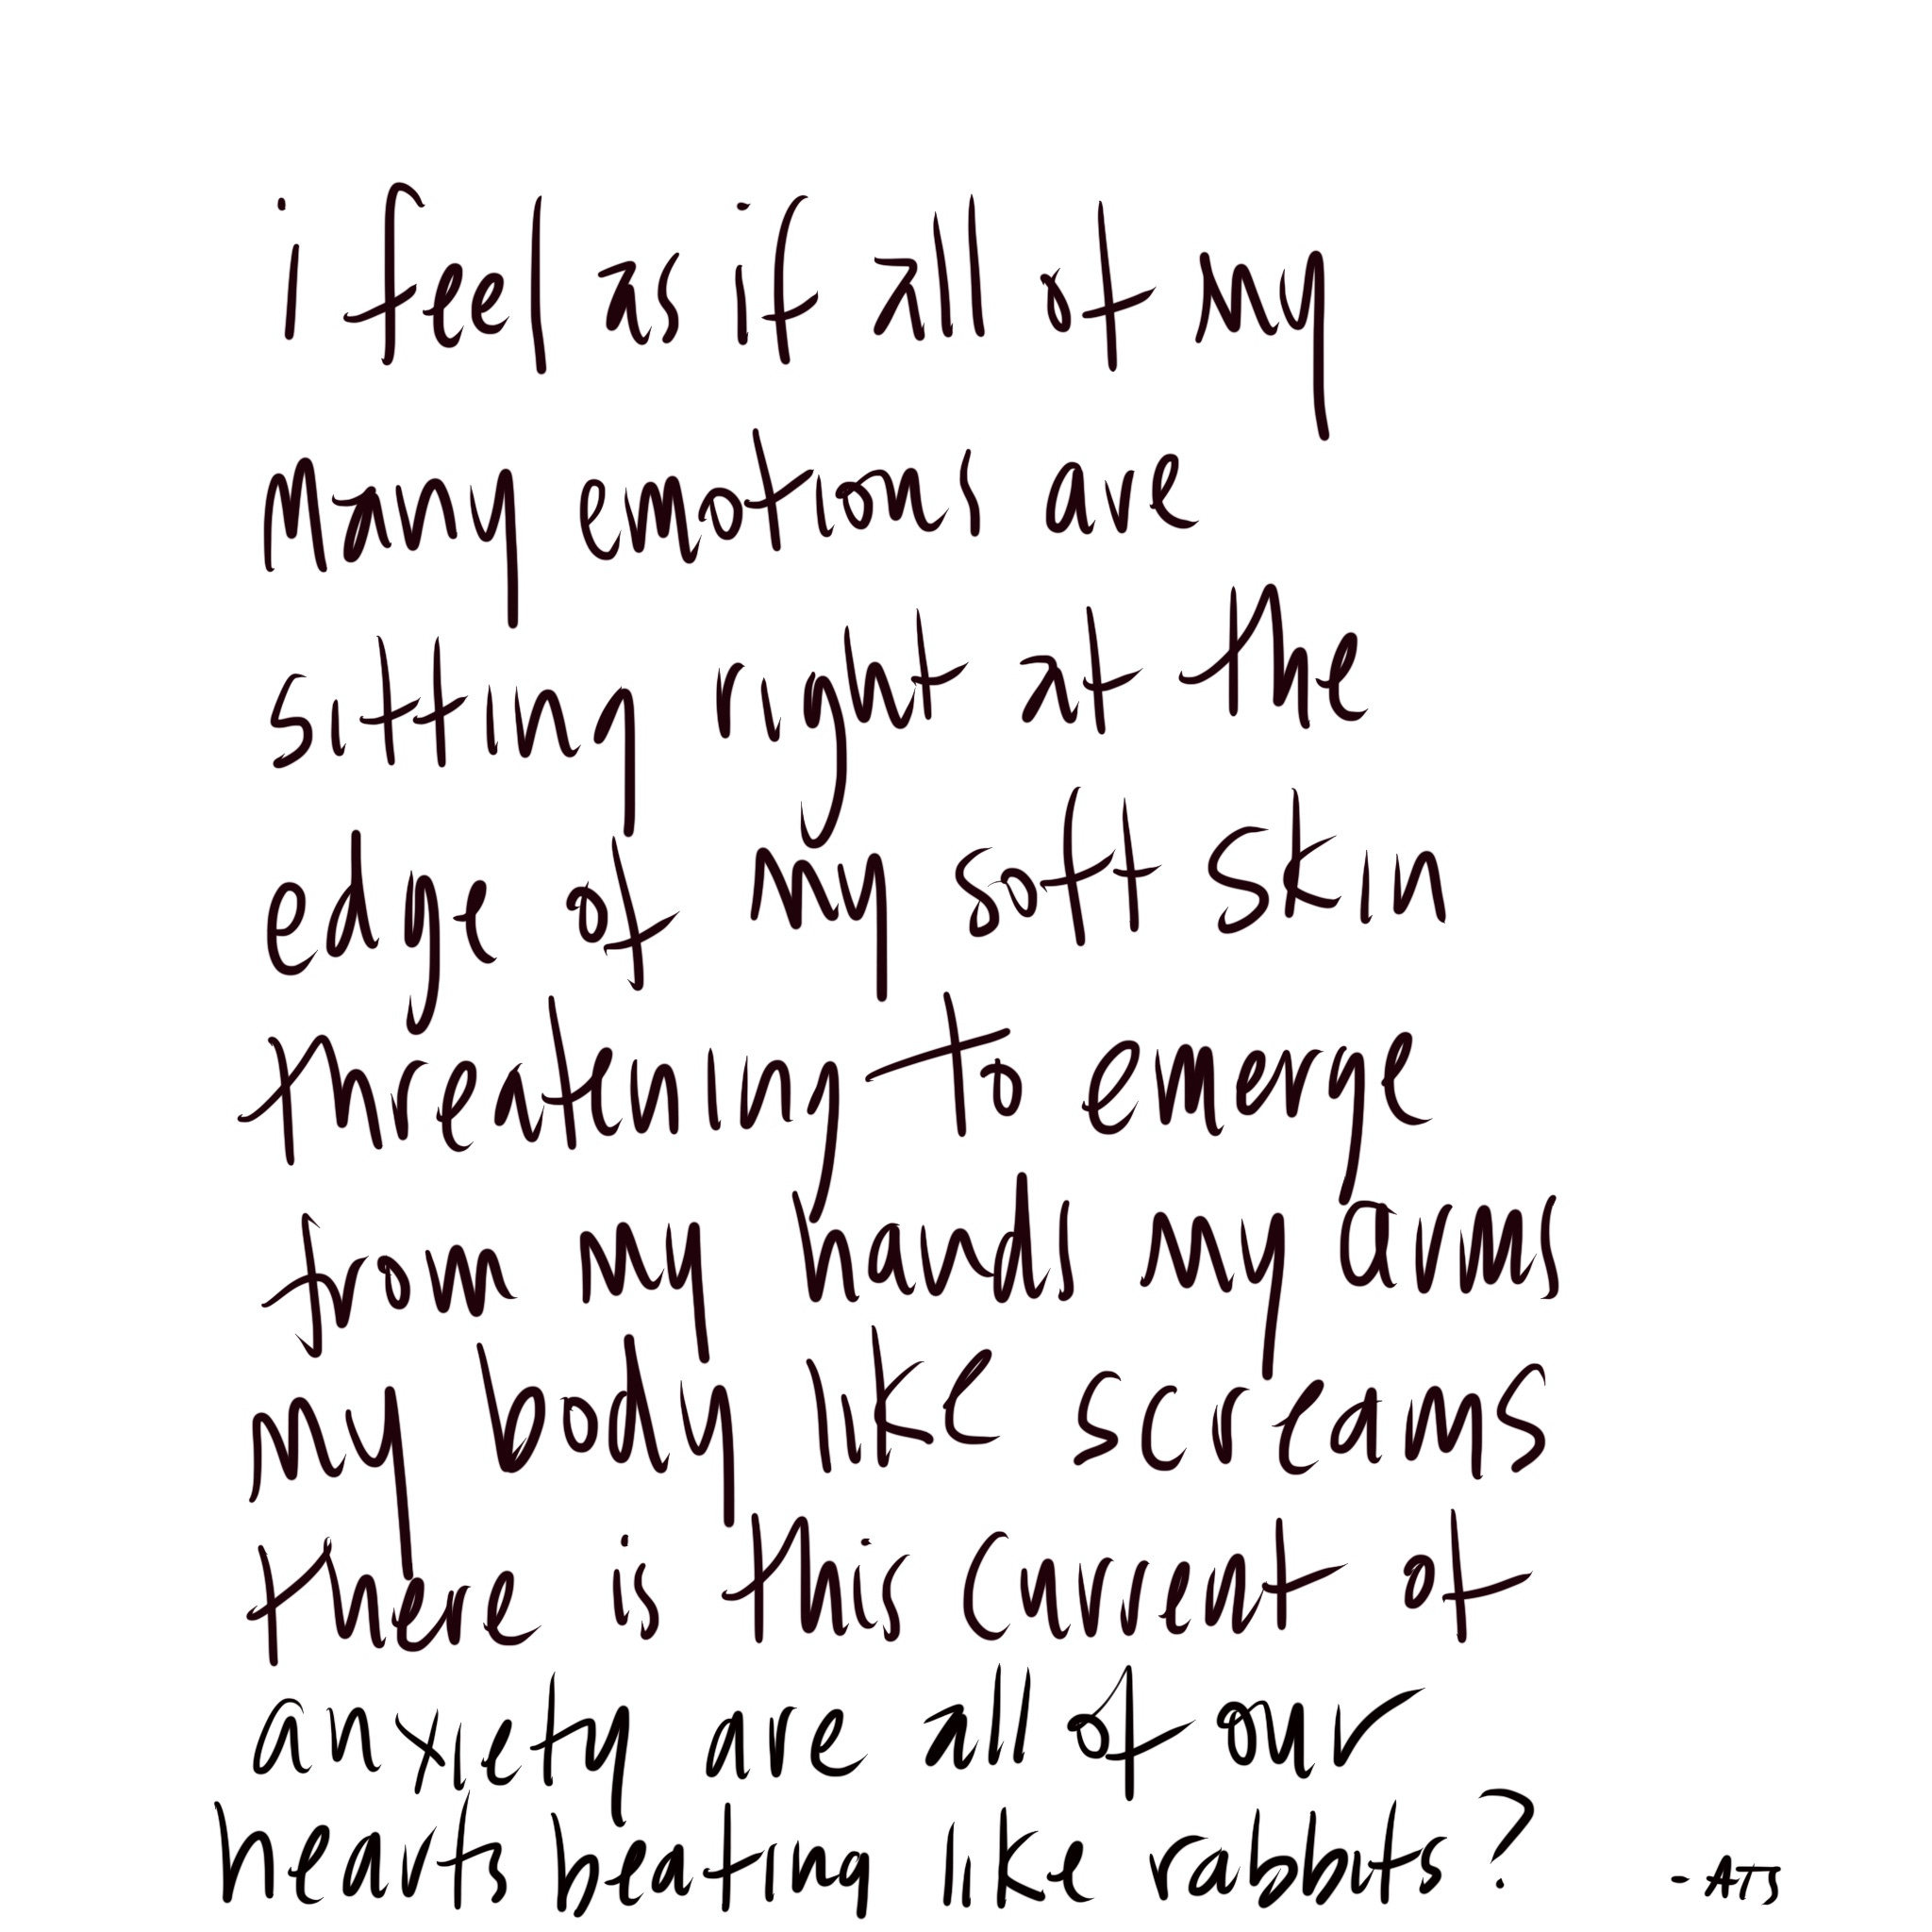 i feel as if all of my
many emotions are
sitting right at the
edge of my soft skin
threatening to emerge
from my hands my arms
my body like screams
there is this current of
anxiety are all of our
hearts beating like rabbits?
- ATJ